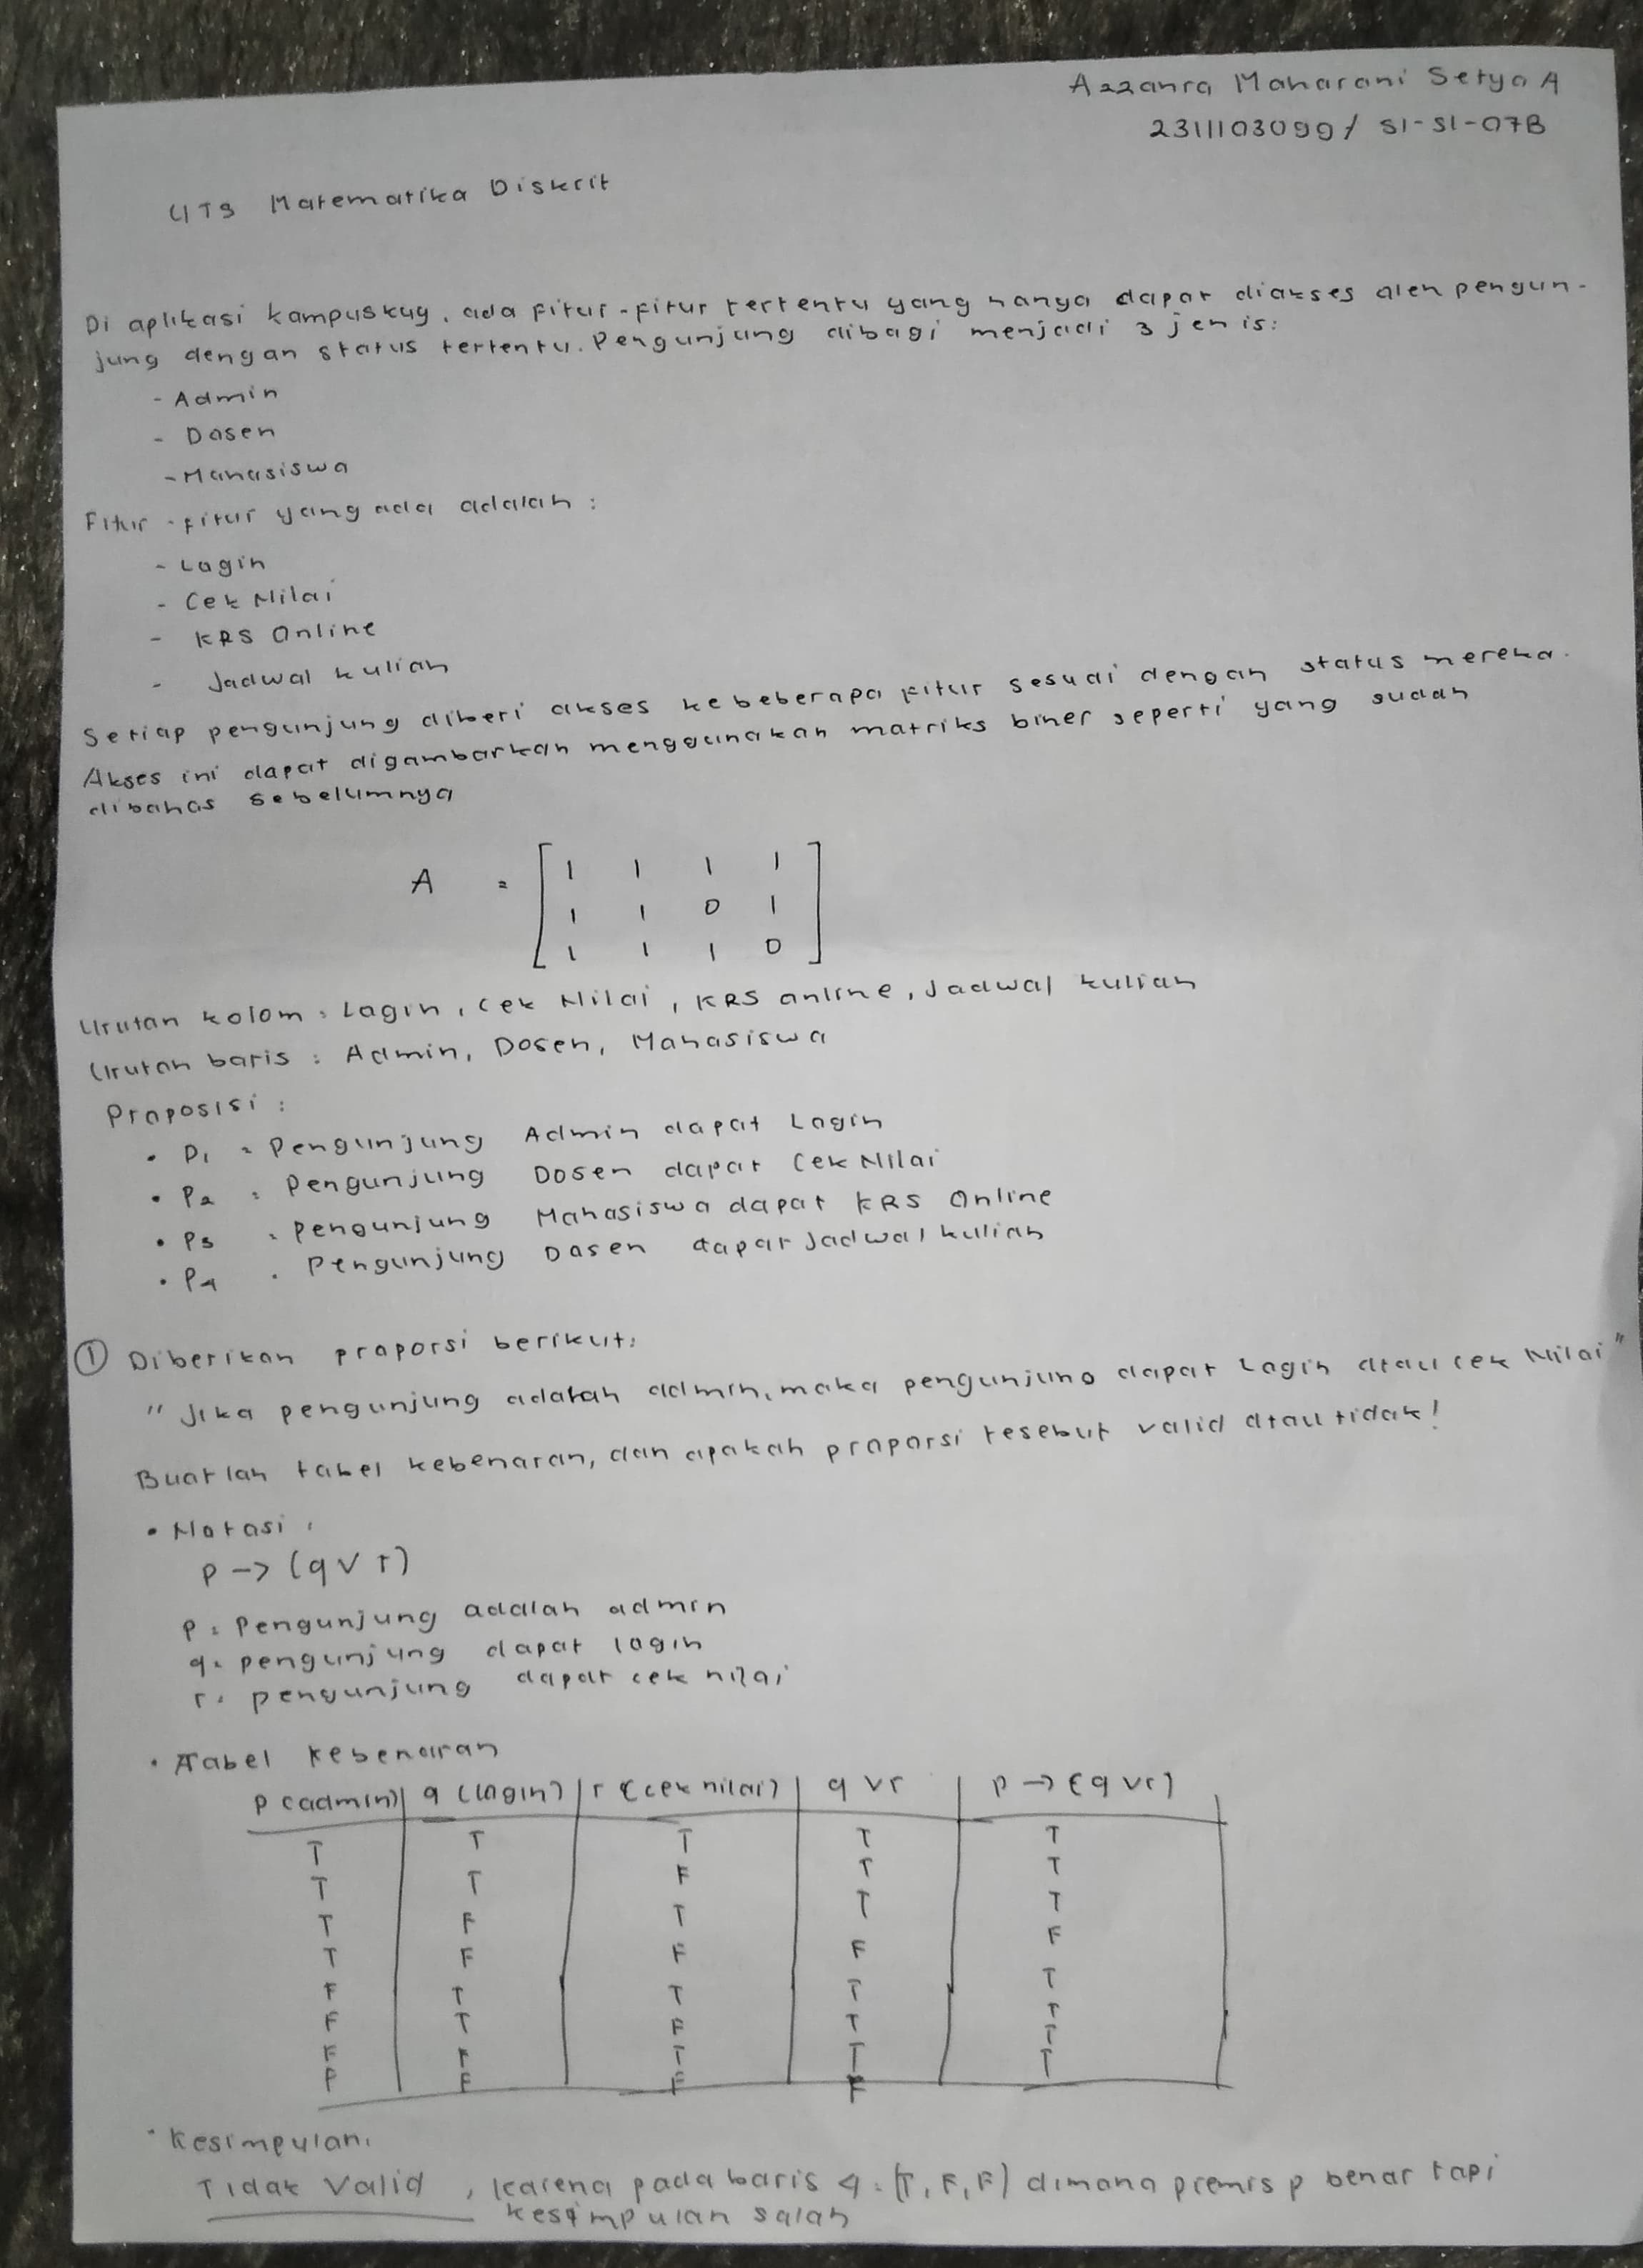 Azzanra Maharani Setya A
2311103099 / S1-SI-07B
UTS Matematika Diskrit
Di aplikasi kampuskug, ada fitur-fitur tertentu yang hanya dapat diakses oleh pengun-
jung dengan status tertentu. Pengunjung dibagi menjadi 3 jenis:
- Admin
- Dosen
- Mahasiswa
Fitur-fitur yang ada adalah :
- Login
- Cek Nilai
- KRS Online
- Jadwal kuliah
Setiap pengunjung diberi akses ke beberapa fitur sesuai dengan status mereka.
Akses ini dapat digambarkan menggunakan matriks biner seperti yang sudah
dibahas sebelumnya
A = [ 1 1 1 1
1 1 0 1
1 1 1 0 ]
Urutan kolom : Login, Cek Nilai, KRS online, Jadwal kuliah
Urutan baris : Admin, Dosen, Mahasiswa
Proposisi :
• P1 : Pengunjung Admin dapat Login
• P2 : Pengunjung Dosen dapat Cek Nilai
• P3 : Pengunjung Mahasiswa dapat KRS Online
• P4 : Pengunjung Dosen dapat Jadwal kuliah
① Diberikan proporsi berikut:
"Jika pengunjung adalah admin, maka pengunjung dapat Login atau cek Nilai"
Buatlah tabel kebenaran, dan apakah proporsi tesebut valid atau tidak!
• Notasi :
p -> (q ∨ r)
p : Pengunjung adalah admin
q : pengunjung dapat login
r : pengunjung dapat cek nilai
• Tabel kebenaran
p (admin) | q (login) | r (cek nilai) | q ∨ r | p -> (q ∨ r)
T T T T T
T T F T T
T F T T T
T F F F F
F T T T T
F T F T T
F F T T T
F F F F T
• Kesimpulan:
Tidak Valid, karena pada baris 4 : (T, F, F) dimana premis p benar tapi
kesimpulan salah